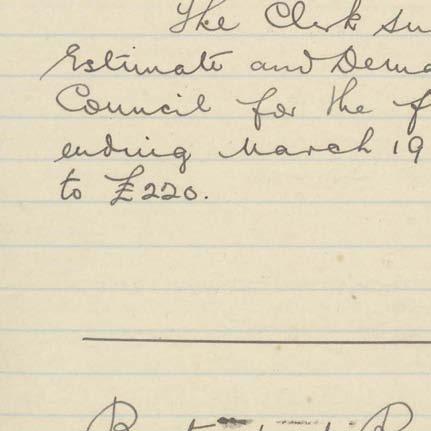 The Clerk su
Estimate and Dema
Council for the f
ending March 19
to £220.